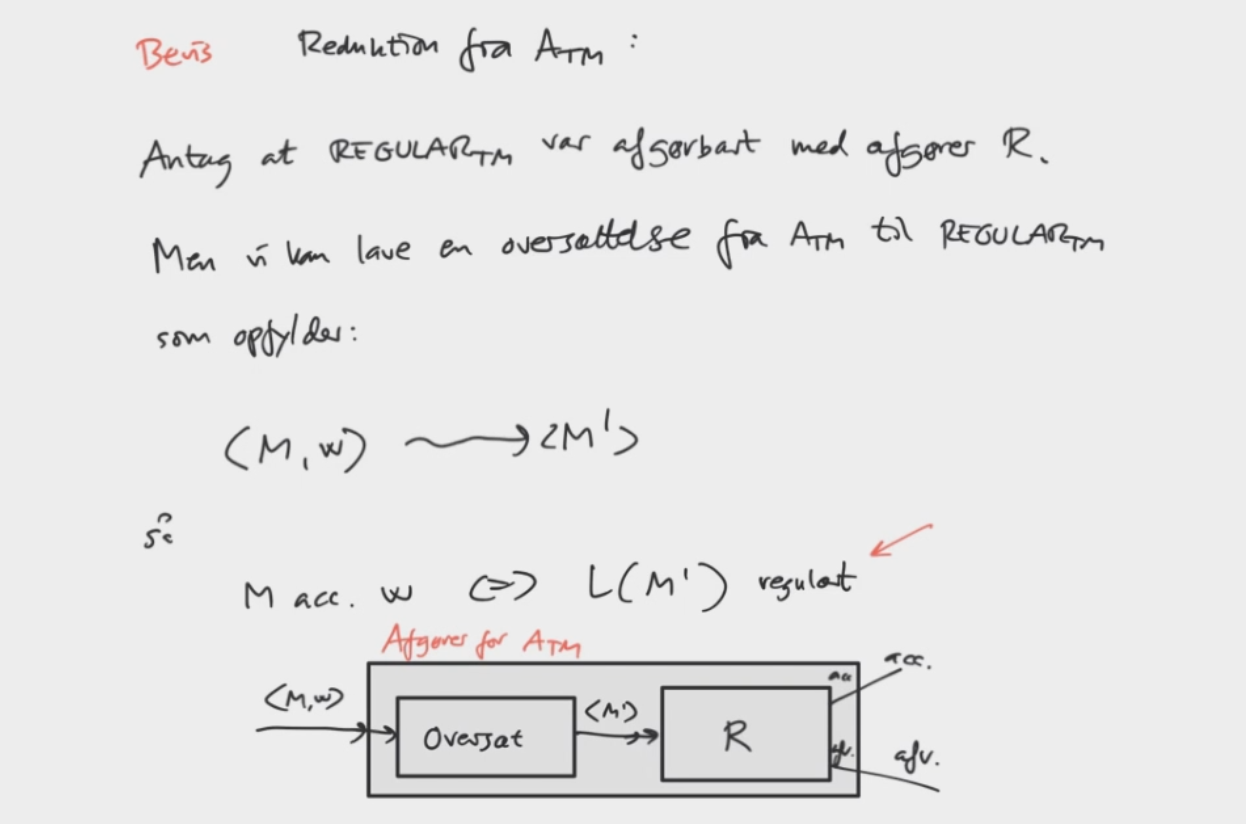 Bevis Reduktion fra A_TM :
Antag at REGULAR_TM var afgørbart med afgører R.
Men vi kan lave en oversættelse fra A_TM til REGULAR_TM
som opfylder:
⟨M, w⟩ ⟶ ⟨M'⟩
så
M acc. w ⟺ L(M') regulært
Afgører for A_TM
⟨M,w⟩ Oversæt ⟨M'⟩ R acc. acc.
afv. afv.